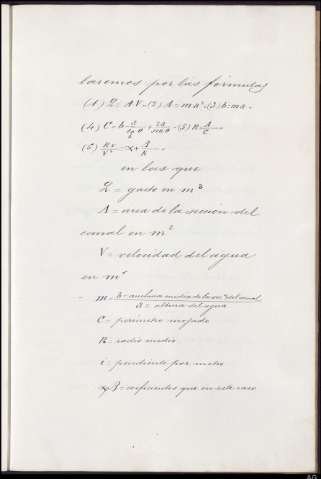 laremos por las fórmulas
(1) Q = AV - (2) A = ma² - (3) b = ma -
(5) R = A/C
(6) Ri/V² = α + β/R
en las que
Q = gasto en m³
A = area de la sección del
canal en m²
V = velocidad del agua
en m^s
m = b = anchura media de la sec^n del canal / a = altura del agua
C = perimetro mojado
R = radio medio
i = pendiente por metro
α β = coeficientes que en este caso